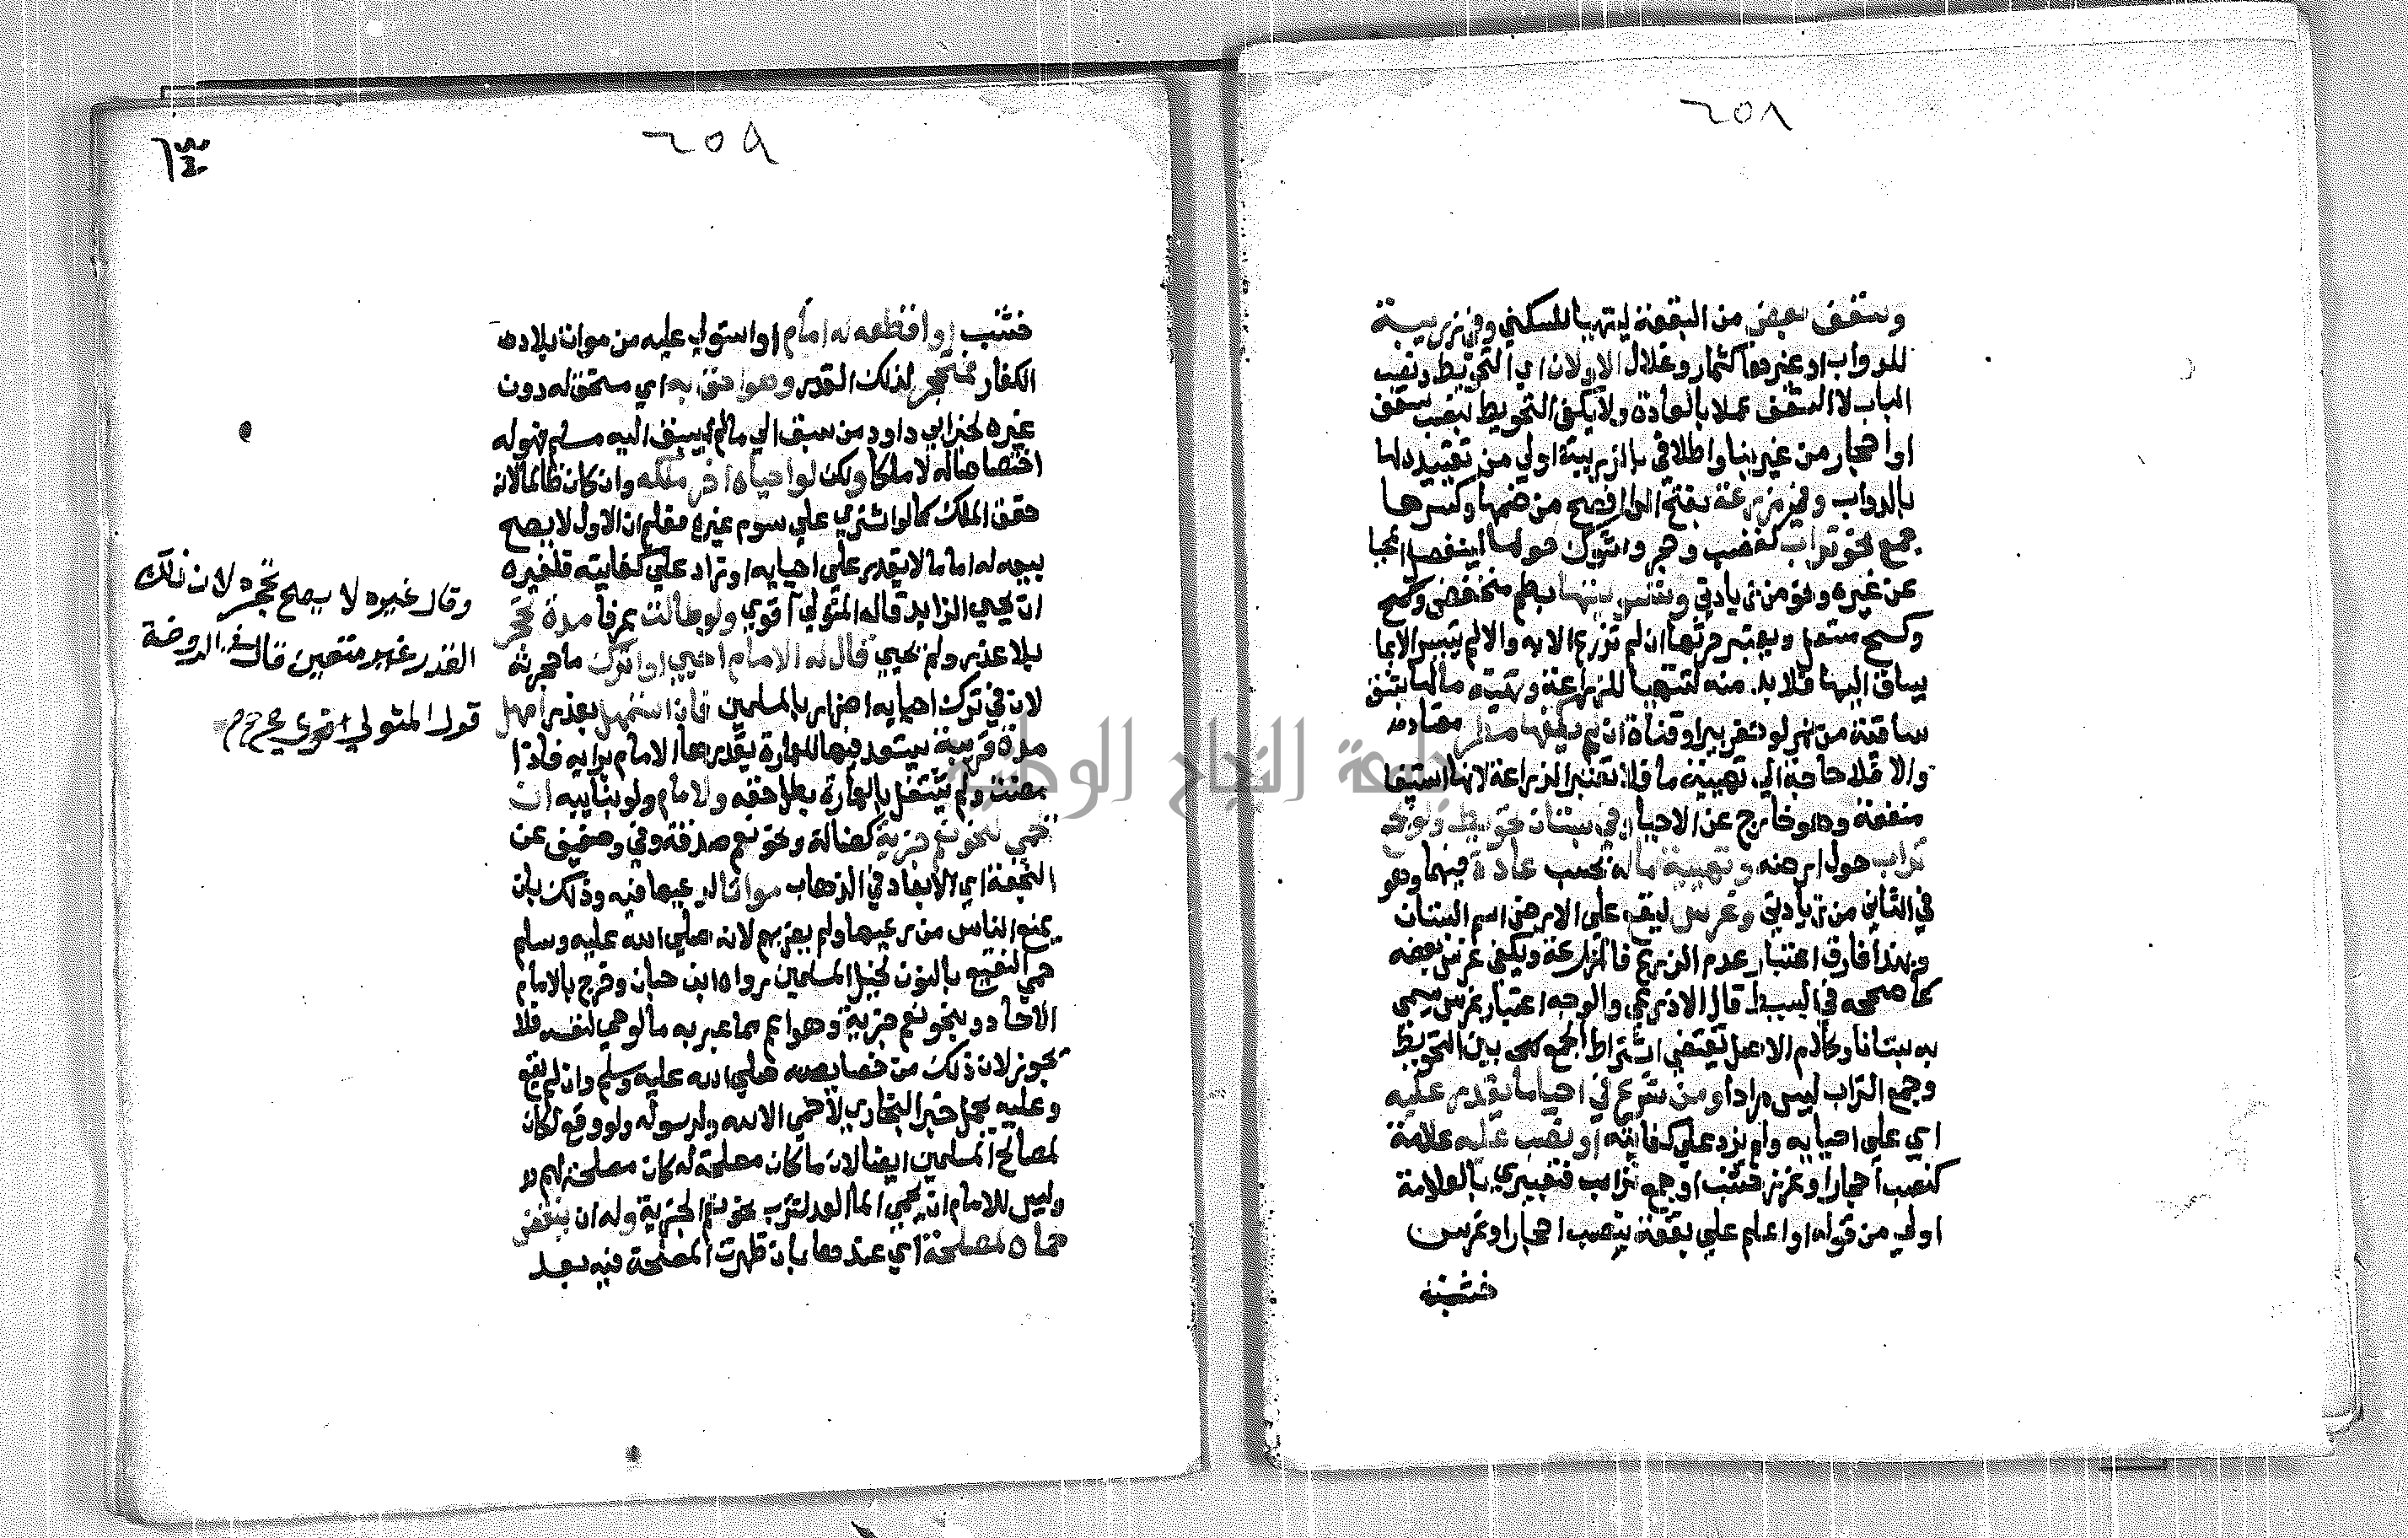 ٢٥٨
وسقف بعض من البقعة ليتهيا للسكني وفي زريبة
للدواب او غيرها كثمار وغلال الاولان اي التحويط ونصب
الباب لا السقف عملا بالعادة ولا يكفي التحويط بنصب سعف
او احجار من غير بنا واطلاقي بالزريبة اولي من تقييده لها
بالدواب وفي مزرعة بفتح الرا افصح من ضمها وكسرها
جمع نحو تراب كقصب وحجر وشوك حولها لينفصل المحيا
عن غيره ونحو من زيادتي وتسويتها بطم منخفض وكسح
وكسح مستعل ويعتبر حرثها ان لم تزرع الا به والا لم يتيسر الا بما
يساق اليها فلا بد منه لتتهيا للزراعة وتهيئة ما لها بشق
ساقية من نهر او بحفر بير او قناة ان لم يكفها مطر معتاد
والا فلا حاجة الي تهيئة ما فلا تعتبر الزراعة لانها استيفا
منفعة وهو خارج عن الاحيا وفي بستان تحويط ولو بجمع
تراب حول ارضه وتهيئة ماله بحسب عادة فيهما وهو
في الثاني من زيادتي وغرس ليقع علي الارض اسم البستان
وبهذا فارق اعتبار عدم الزرع في المزرعة ويكفي غرس بعضه
كما صححه في البسيط قال الاذرعي والوجه اعتبار غرس يسمي
به بستانا وكلام الاصل يقتضي اشتراط الجمع بين التحويط
وجمع التراب ليس مرادا ومن شرع في احيا ما يقدر عليه
اي علي احيايه ولم يزد علي كفايته او نصب عليه علامة
كنصب احجار او غرز خشب او جمع تراب فتعبيري بالعلامة
اولي من قوله او اعلم علي بقعة بنصب احجار او غرس
خشبة
٢٥٩
خشب او اقطعه له امام او استولي عليه من موات بلاد
الكفار فمتحجر لذلك القدر وهو احق به اي مستحق له دون
غيره لخبر ابي داود من سبق الي ما لم يسبق اليه مسلم فهو له
اختصاصا له لا ملكا ولكن لو احياه اخر ملكه وان كان ظالما لانه
حقق الملك كما لو اشتري علي سوم غيره فعلم ان الاول لا يصح
بيعه له اما ما لا يقدر علي احيايه او زاد علي كفايته فلغيره
ان يحيي الزايد قاله المتولي اقوي ولو طالت عرفا مدة تحجر
بلا عذر ولم يحيي قال له الامام احيي او اترك ما حجرته
لان في ترك احيايه اضرارا بالمسلمين فان استمهل بعذر امهل
مدة قريبة يستعد فيها للعمارة يقدرها الامام برايه فاذا
مضت ولم يشتغل بالعمارة بطل حقه والامام ولو بنايبه ان
يحمي لنحو نعم جزية كضالة ونحو نعم صدقة وفي وضعيف عن
النجعة اي الابعاد في الذهاب مواتا لرعيها فيه وذلك بان
يمنع الناس من رعيها ولم يضر بهم لانه صلي الله عليه وسلم
حمي النقيع بالنون لخيل المسلمين رواه ابن حبان وخرج بالامام
الاحاد وبنحو نعم جزية وهو اعم مما عبر به ما لو حمي لنفسه فلا
يجوز لان ذلك من خصايصه صلي الله عليه وسلم وان لم يقع
وعليه يحمل خبر البخاري لا حمي الا لله ولرسوله ولو وقع لكان
لمصالح المسلمين ايضا لان ما كان مصلحة له كان مصلحة لهم
وليس للامام ان يحمي الما العد لشرب نحو نعم الجزية وله ان ينقض
حماه لمصلحة اي عندها بان ظهرت المصلحة فيه بعد
وقال غيره لا يصح تحجره لان ذلك
القدر غير متعين قال في الروضة
قول المتولي اقوي